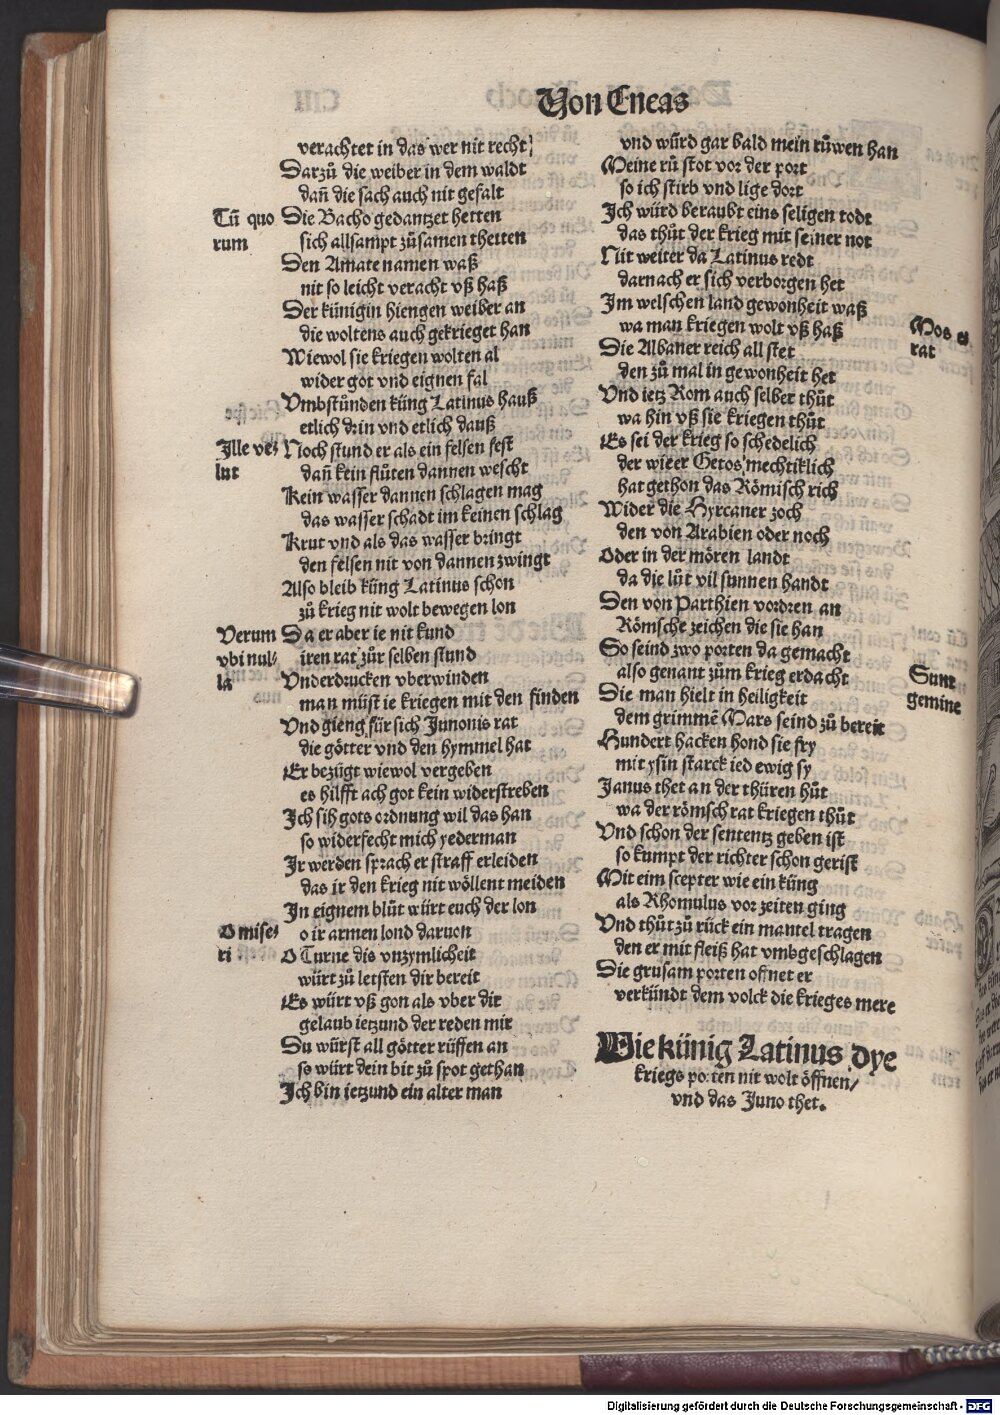 Von Eneas
verachtet in das wer nit recht
Darzuͦ die weiber in dem waldt
dañ die sach auch nit gefalt
Tū quo
rum
Die Bacho gedantzet hetten
sich allsampt zuͦsamen thetten
Den Amate namen waß
nit so leicht veracht vß haß
Der künigin hiengen weiber an
die woltens auch gekrieget han
Wiewol sie kriegen wolten al
wider got vnd eignen fal
Vmbstuͦnden küng Latinus hauß
etlich drin vnd etlich dauß
Ille ve⸗
lut
Noch stund er als ein felsen fest
dañ kein fluͦten dannen wescht
Kein wasser dannen schlagen mag
das wasser schadt im keinen schlag
Krut vnd als das wasser bringt
den felsen nit von dannen zwingt
Also bleib küng Latinus schon
zuͦ krieg nit wolt bewegen lon
Verum
vbi nul⸗
la
Da er aber ie nit kund
iren rat zuͦr selben stund
Vnderdrucken vberwinden
man muͦst ie kriegen mit den finden
Vnd gieng für sich Junonis rat
die götter vnd den hymmel hat
Er bezügt wiewol vergeben
es hilfft ach got kein widerstreben
Ich sih gots ordnung wil das han
so widerfecht mich yederman
Ir werden sprach er straff erleiden
das ir den krieg nit wöllent meiden
In eignem bluͦt würt euch der lon
O mise⸗
ri
o ir armen lond daruon
O Turne dis vnzymlicheit
würt zuͦ letsten dir bereit
Es würt vß gon als vber dir
gelaub ietzund der reden mir
Du würst all götter ruͤffen an
so würt dein bit zuͦ spot gethan
Ich bin ietzund ein alter man
vnd würd gar bald mein ruͦwen han
Meine ruͦ stot vor der port
so ich stirb vnd lige dort
Ich würd beraubt eins seligen todt
das thuͦt der krieg mit seiner not
Nit weiter da Latinus redt
darnach er sich verborgen het
Im welschen land gewonheit waß
wa man kriegen wolt vß haß
Mos e
rat
Die Albaner reich all stet
den zuͦ mal in gewonheit het
Vnd ietz Rom auch selber thuͦt
wa hin vß sie kriegen thuͦt
Es sei der krieg so schedelich
der wie er Getos mechtiklich
hat gethon das Römisch rich
Wider die Hyrcaner zoch
den von Arabien oder noch
Oder in der mören landt
da die lüt vil sunnen handt
Den von Parthien vordren an
Römsche zeichen die sie han
So seind zwo porten da gemacht
also genant zuͦm krieg erdacht
Sunt
gemine
Die man hielt in heiligkeit
dem grimmē Mars seind zuͦ bereit
Hundert hacken hond sie fry
mit ysin starck ied ewig sy
Janus thet an der thüren huͦt
wa der römsch rat kriegen thuͦt
Vnd schon der sententz geben ist
so kumpt der richter schon gerist
Mit eim scepter wie ein küng
als Rhomulus vor zeiten ging
Vnd thuͦt zuͦ rück ein mantel tragen
den er mit fleiß hat vmbgeschlagen
Die grusam porten offnet er
verkündt dem volck die krieges mere
Wie künig Latinus dye
kriegs porten nit wolt öffnen/
vnd das Juno thet.
Digitalisierung gefördert durch die Deutsche Forschungsgemeinschaft - DFG